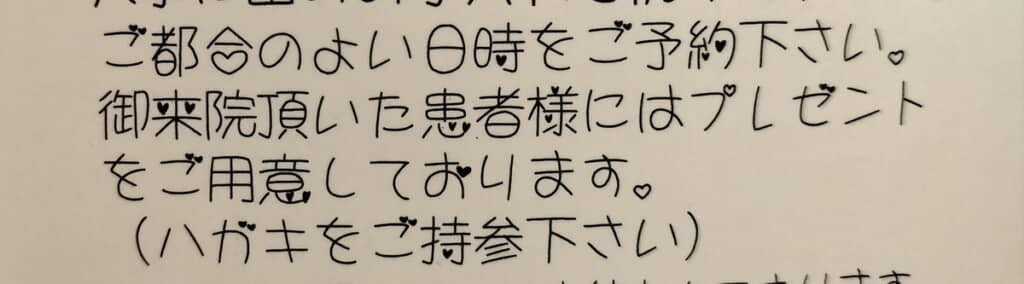 ご都合のよい日時をご予約下さい。
御来院頂いた患者様にはプレゼント
をご用意しております。
(ハガキをご持参下さい)